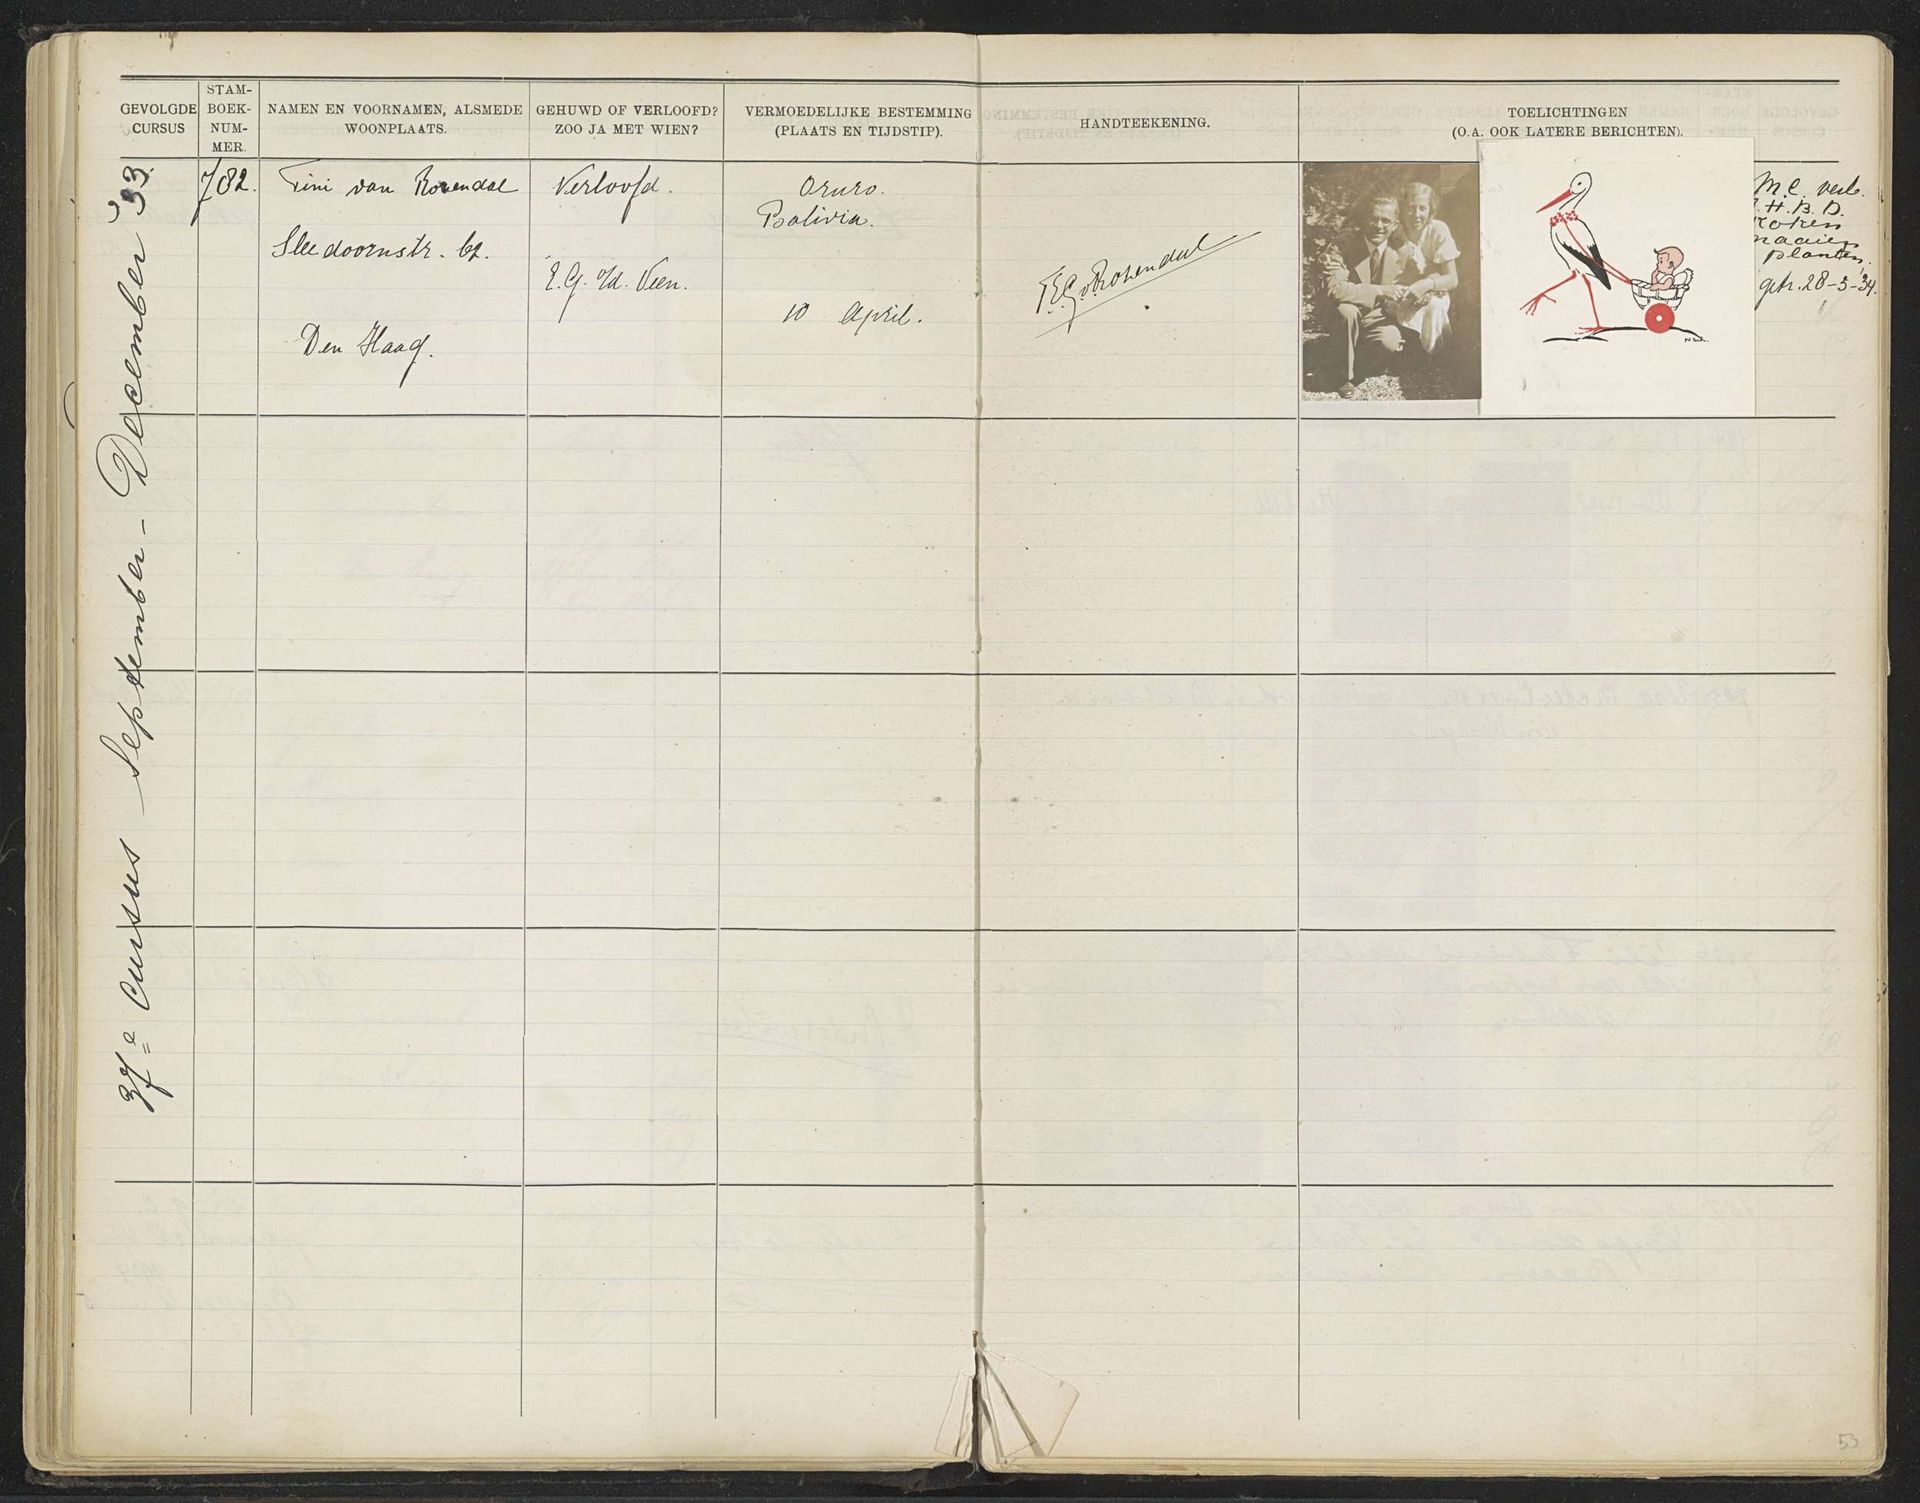 GEVOLGDE CURSUS
STAM-
BOEK-
NUM-
MER.
NAMEN EN VOORNAMEN, ALSMEDE
WOONPLAATS.
GEHUWD OF VERLOOFD?
ZOO JA MET WIEN?
VERMOEDELIJKE BESTEMMING
(PLAATS EN TIJDSTIP).
HANDTEEKENING.
TOELICHTINGEN
(O.A. OOK LATERE BERICHTEN).
37e cursus September - December '33.
782.
Tini van Rozendal
Sleedoornstr.
Den Haag.
Verloofd.
E.G. v/d. Veen.
Oruro.
Bolivia.
10 April.
T.E.G. v. Rozendaal
M.C. verb.
H.B.D.
koken
naaien
planten,
getr. 28-3-'34.
53